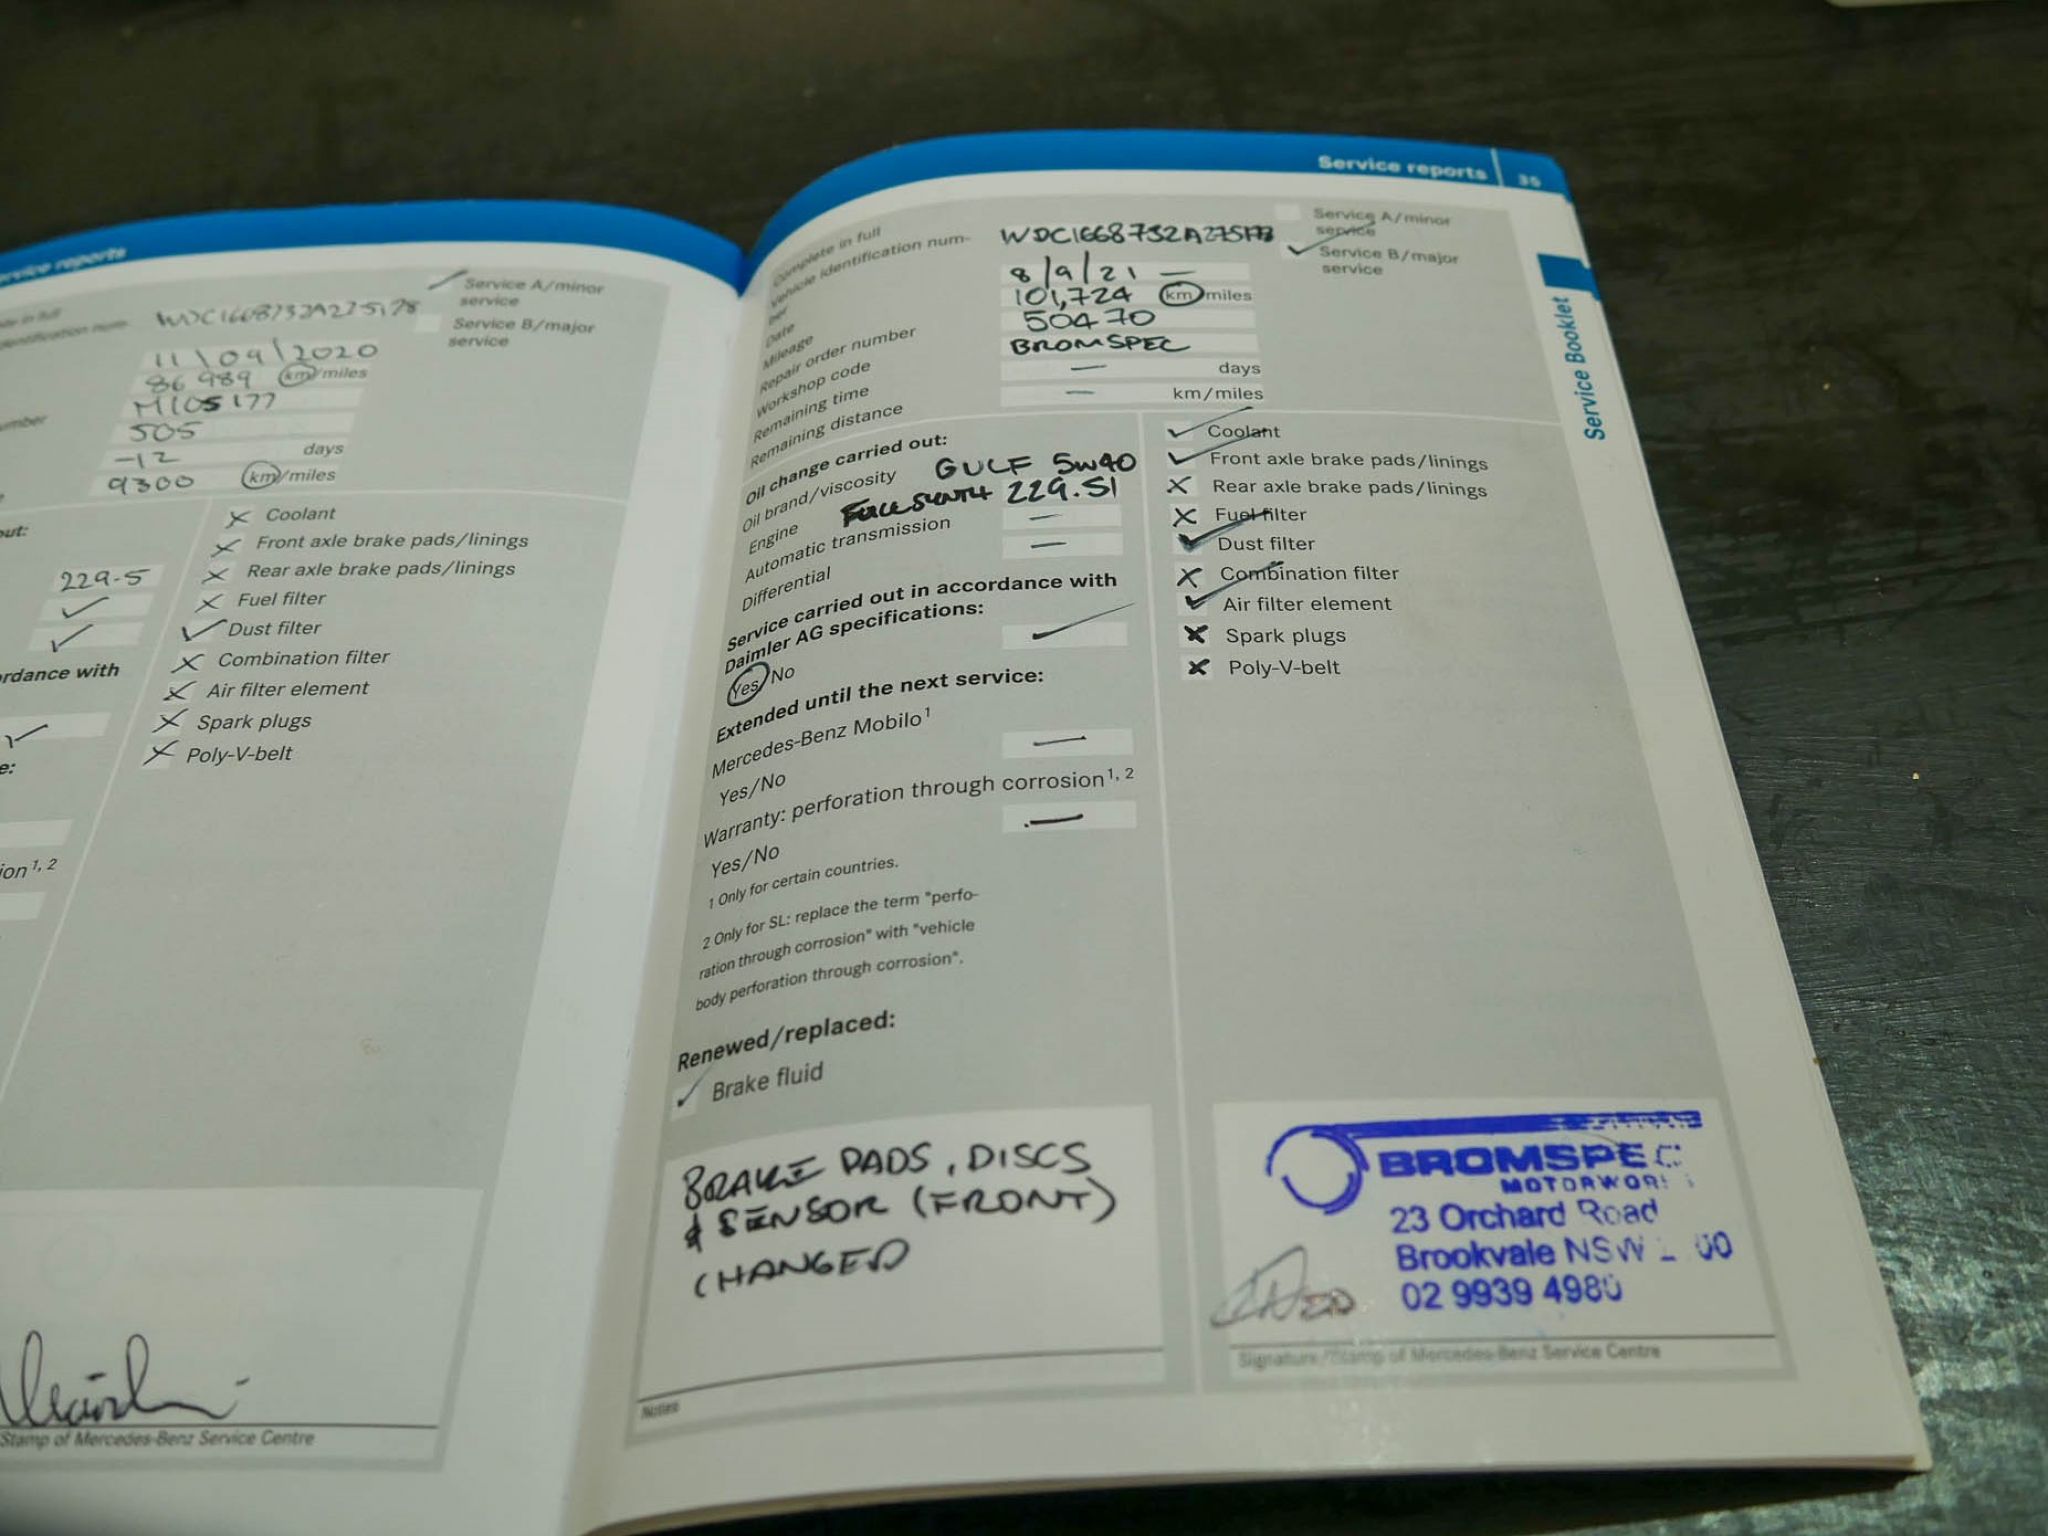 Service reports
Service A/minor
service
Service B/major
service
11/09/2020
86 989 km/miles
M105177
505
-12 days
9300 km/miles
out:
229-5
ordance with
ion1, 2
Coolant
Front axle brake pads/linings
Rear axle brake pads/linings
Fuel filter
Dust filter
Combination filter
Air filter element
Spark plugs
Poly-V-belt
Stamp of Mercedes-Benz Service Centre
Service reports 35
Service Booklet
Complete in full
Vehicle identification num-
ber
Service A/minor
service
Service B/major
service
Date 8/9/21 —
Mileage 101,724 km/miles
Repair order number 50470
Workshop code BROMSPEC
Remaining time — days
Remaining distance — km/miles
Oil change carried out:
Oil brand/viscosity GULF 5W40
Engine FULL SYNTH 229.51
Automatic transmission —
Differential —
Service carried out in accordance with
Daimler AG specifications:
Yes/No
Extended until the next service:
Mercedes-Benz Mobilo1
Yes/No —
Warranty: perforation through corrosion1, 2
Yes/No —
1 Only for certain countries.
2 Only for SL: replace the term "perfo-
ration through corrosion" with "vehicle
body perforation through corrosion".
Renewed/replaced:
Brake fluid
Coolant
Front axle brake pads/linings
Rear axle brake pads/linings
Fuel filter
Dust filter
Combination filter
Air filter element
Spark plugs
Poly-V-belt
BRAKE PADS, DISCS
& SENSOR (FRONT)
CHANGED
Notes
BROMSPEC
MOTORWORKS
23 Orchard Road
Brookvale NSW
02 9939 4980
Signature/Stamp of Mercedes-Benz Service Centre